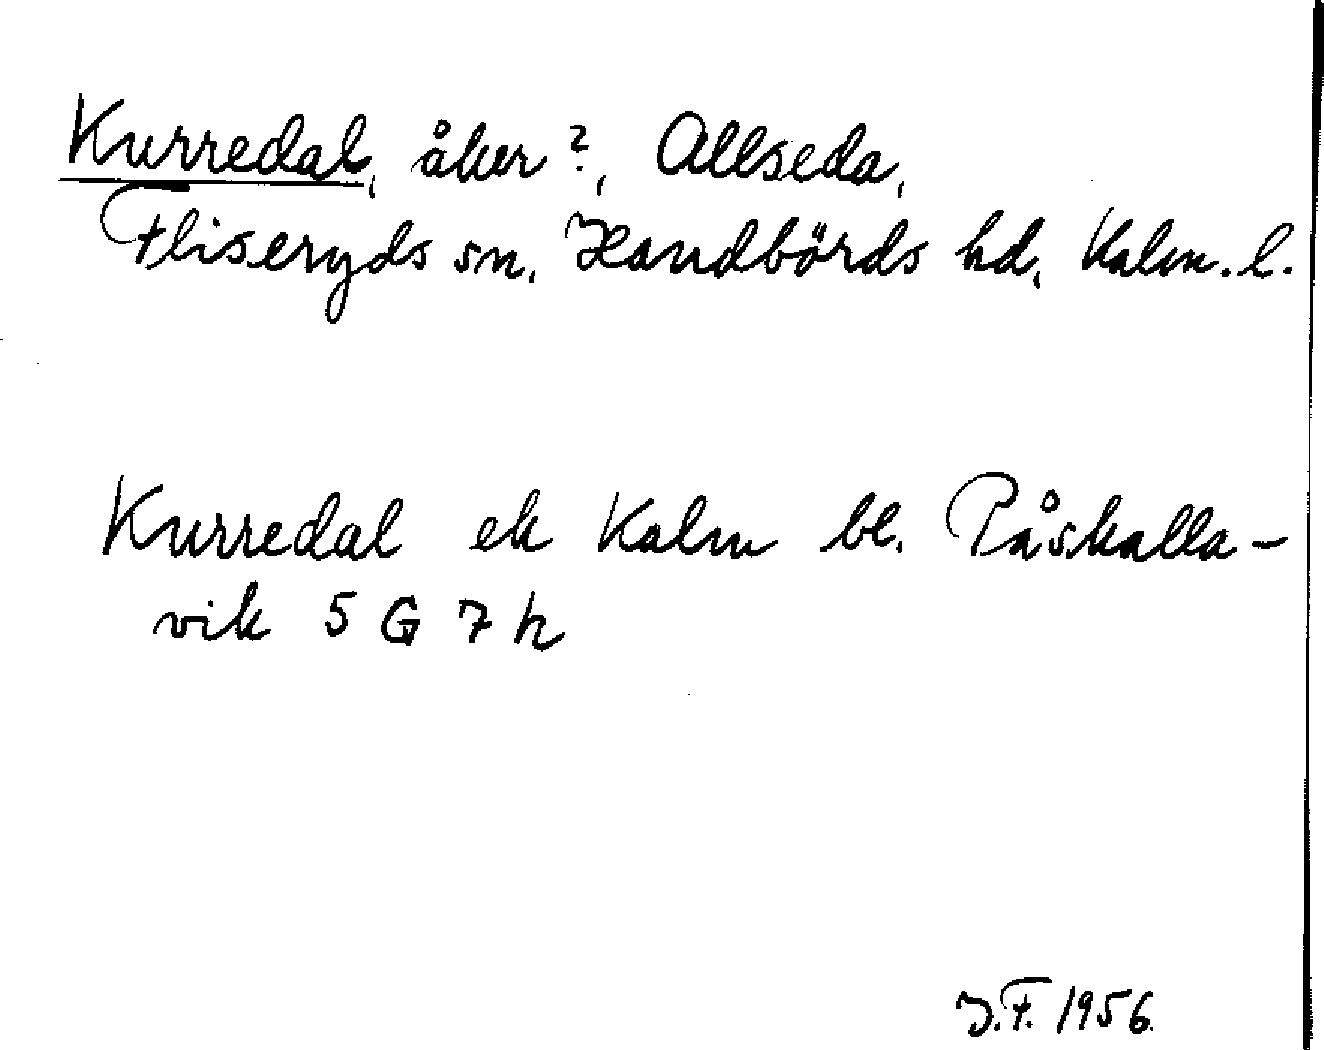 Kurredal, åker?, Allseda,
Fliseryds sn, Handbörds hd, Kalm. l.
Kurredal ek Kalm bl. Påskalla-
vik 5 G 7 h
J.F. 1956.